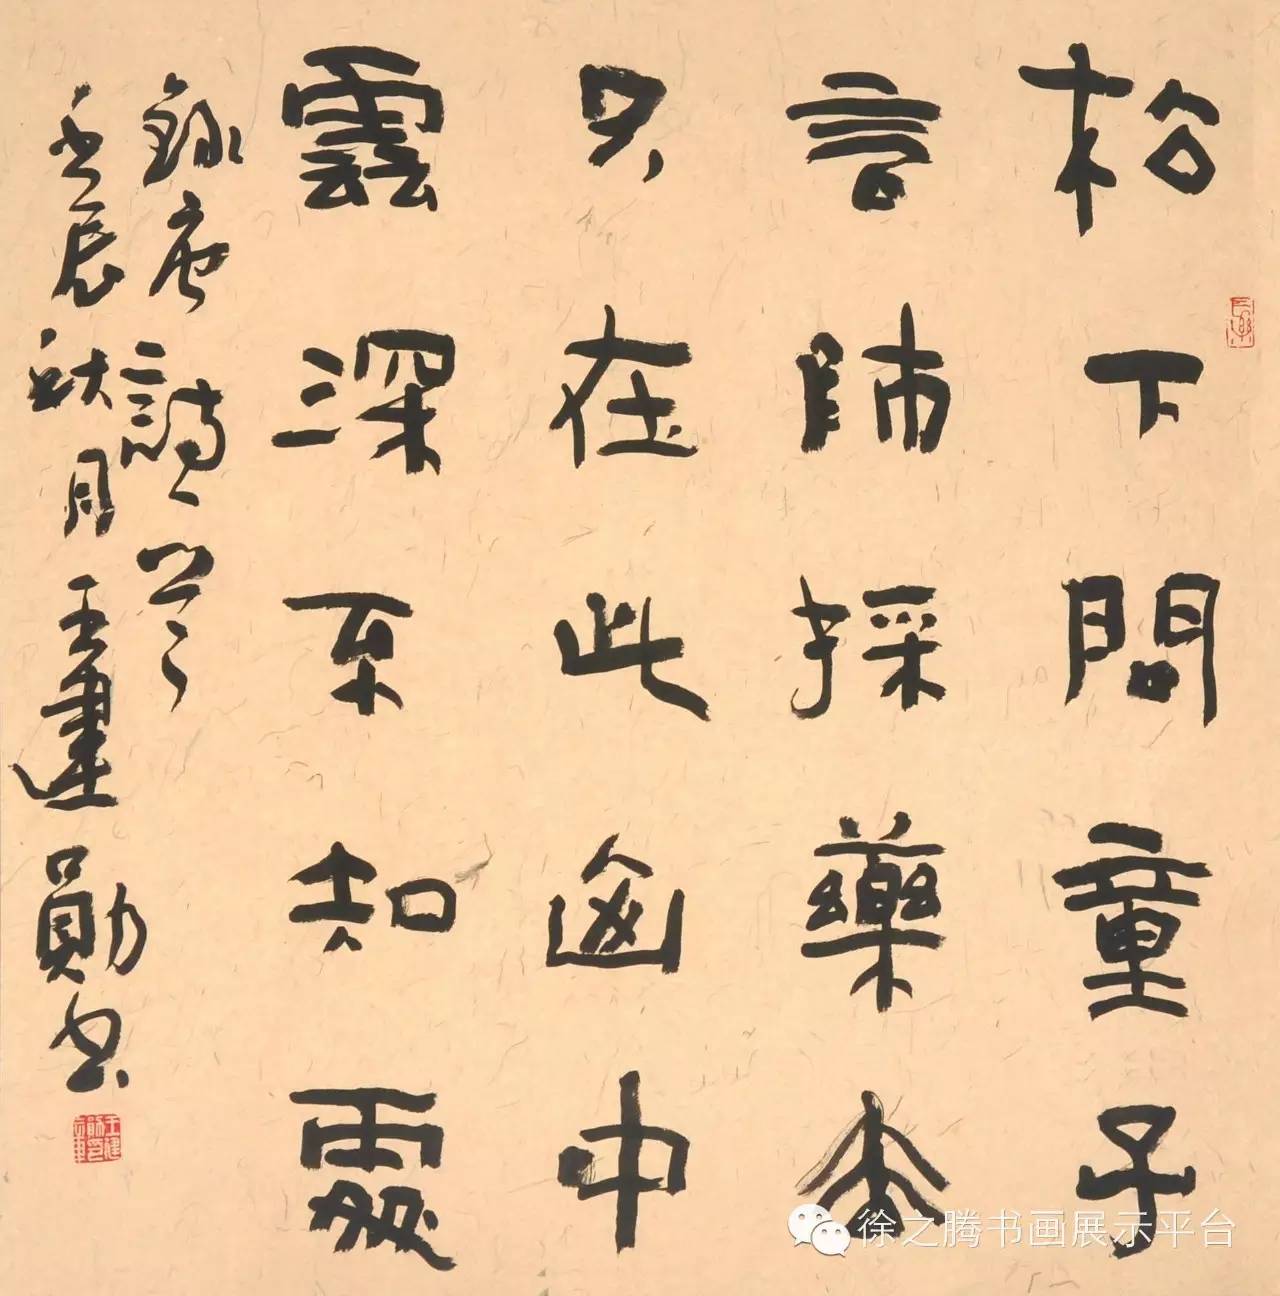 松下問童子
言師採藥去
只在此山中
雲深不知處
錄唐詩一首
壬辰秋月王建勛書
長樂
徐之腾书画展示平台